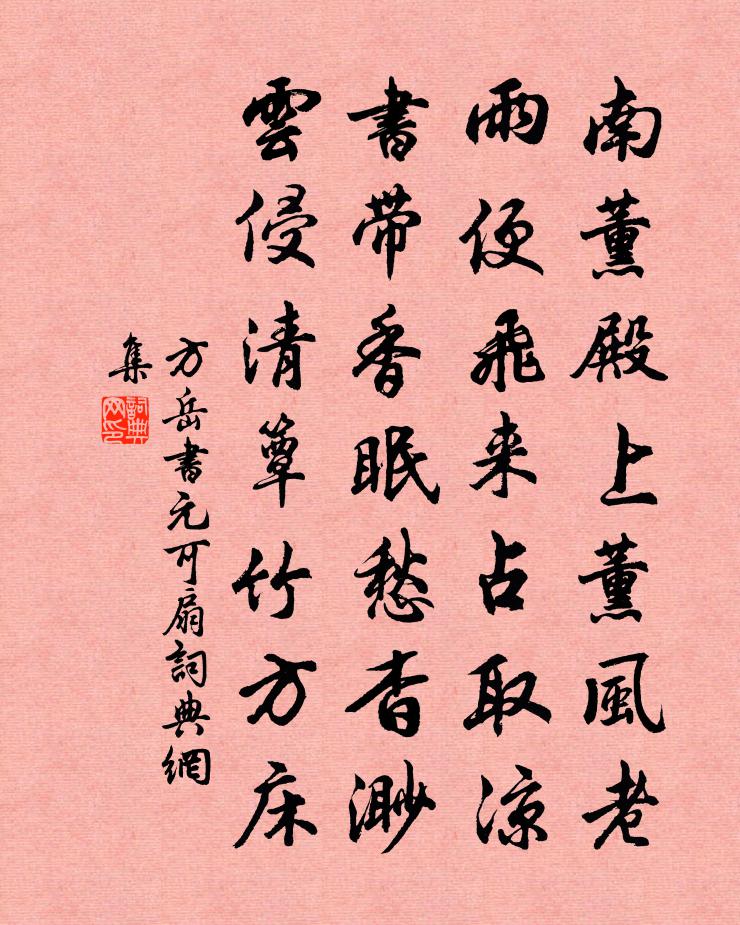 南薰殿上薰風老
雨便飛来占取凉
書带香眠愁杳渺
雲侵清簟竹方床
方岳書元可扇詞典網
集
詞典
网印